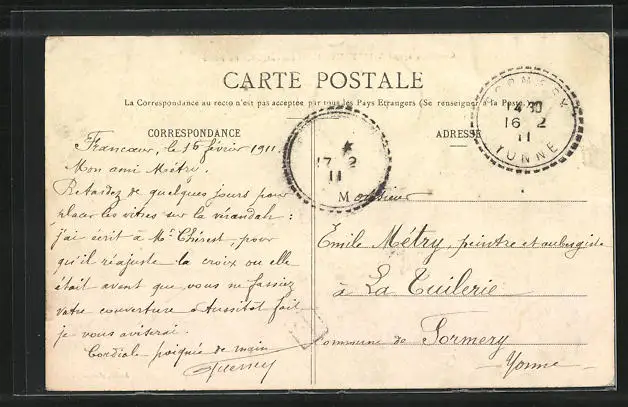 CARTE POSTALE
La Correspondance au recto n'est pas acceptée par tous les Pays Etrangers (Se renseigner à la Poste.)
CORRESPONDANCE
ADRESSE
Francœur, le 16 février 1911.
Mon ami Métry.
Retardez de quelques jours pour
placer les vitres sur la verandah :
j'ai écrit à Mr. Chérest, pour
qu'il réajuste la croix ou elle
était avant que vous ne fassiez
votre couverture. Aussitôt fait
je vous aviserai.
Cordiale poignée de main
Monsieur
Emile Métry, peintre et aubergiste
à La Tuilerie
Commune de Sormery
Yonne
14 30
16 - 2
11
YONNE
17 - 2
11